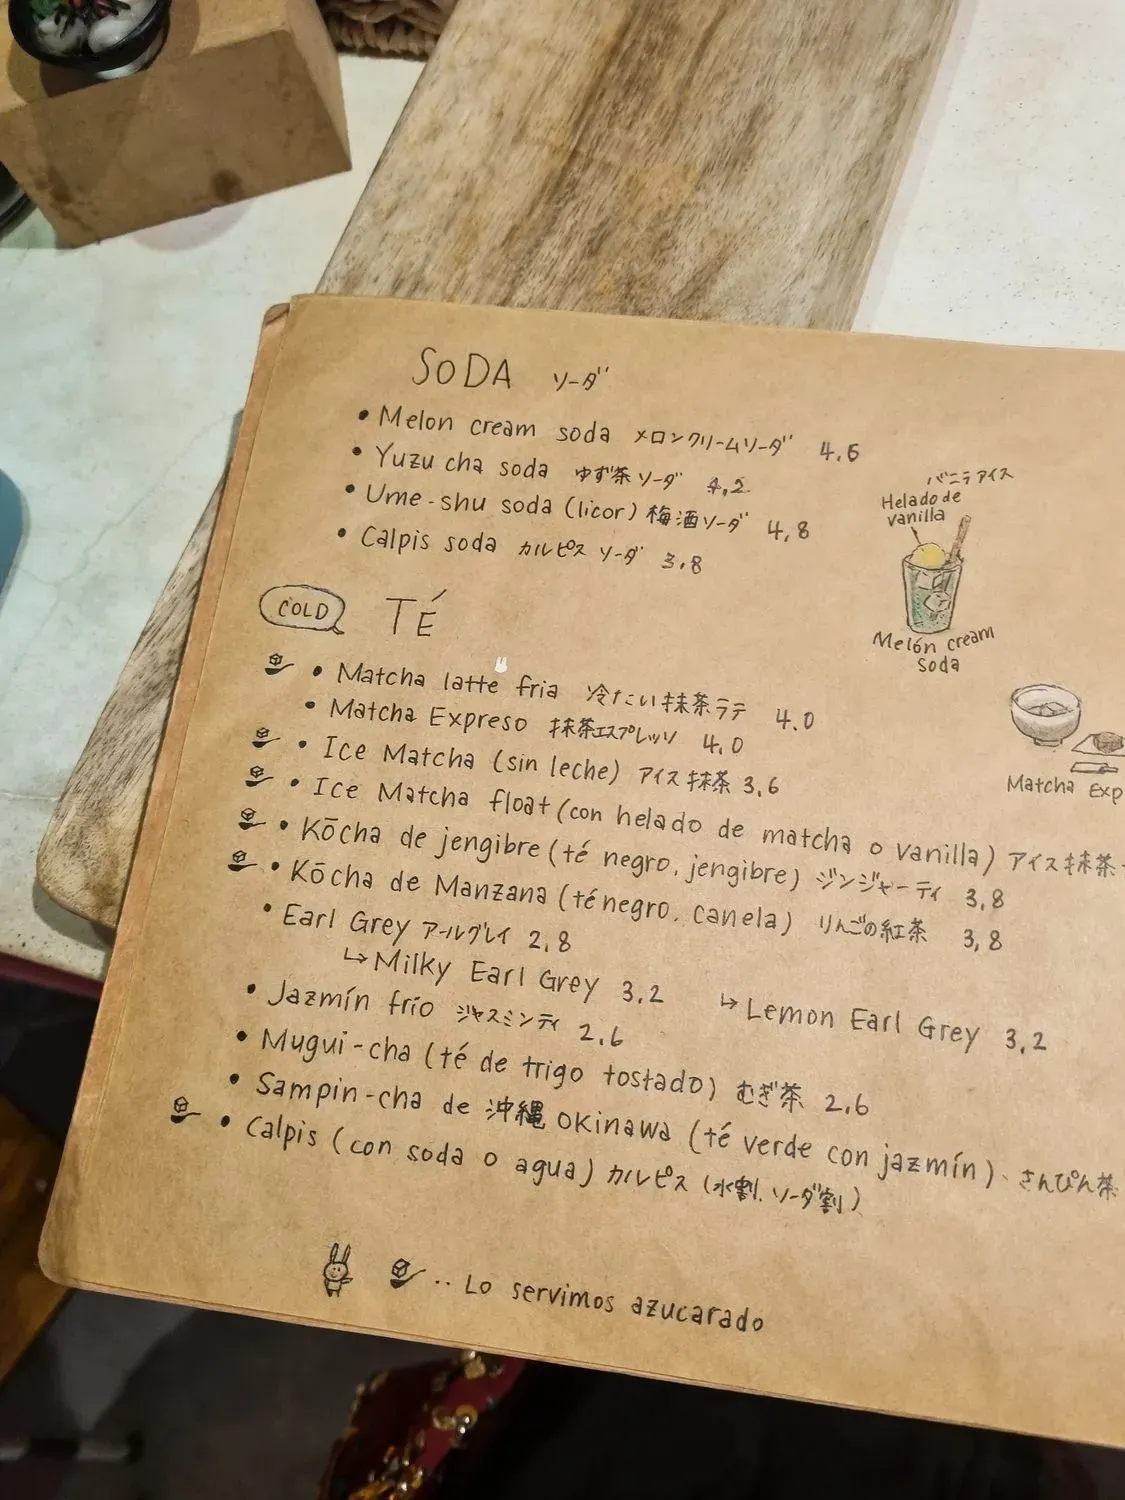 SODA ソーダ
• Melon cream soda メロンクリームソーダ 4,5
• Yuzu cha soda ゆず茶ソーダ 4,2
• Ume-shu soda (licor) 梅酒ソーダ 4,8
• Calpis soda カルピスソーダ 3,8
バニラアイス
Helado de
vanilla
Melón cream
soda
COLD TÉ
• Matcha latte fria 冷たい抹茶ラテ 4.0
• Matcha Expreso 抹茶エスプレッソ 4.0
• Ice Matcha (sin leche) アイス抹茶 3,6
• Ice Matcha float (con helado de matcha o vanilla) アイス抹茶
Matcha Exp
• Kōcha de jengibre (té negro, jengibre) ジンジャーティ 3,8
• Kōcha de Manzana (té negro, canela) りんごの紅茶 3,8
• Earl Grey アールグレイ 2,8
↳ Milky Earl Grey 3,2 ↳ Lemon Earl Grey 3,2
• Jazmín frío ジャスミンティ 2,6
• Mugui-cha (té de trigo tostado) むぎ茶 2,6
• Sampin-cha de 沖縄 OKinawa (té verde con jazmín) さんぴん茶
• Calpis (con soda o agua) カルピス (水割, ソーダ割)
.. Lo servimos azucarado